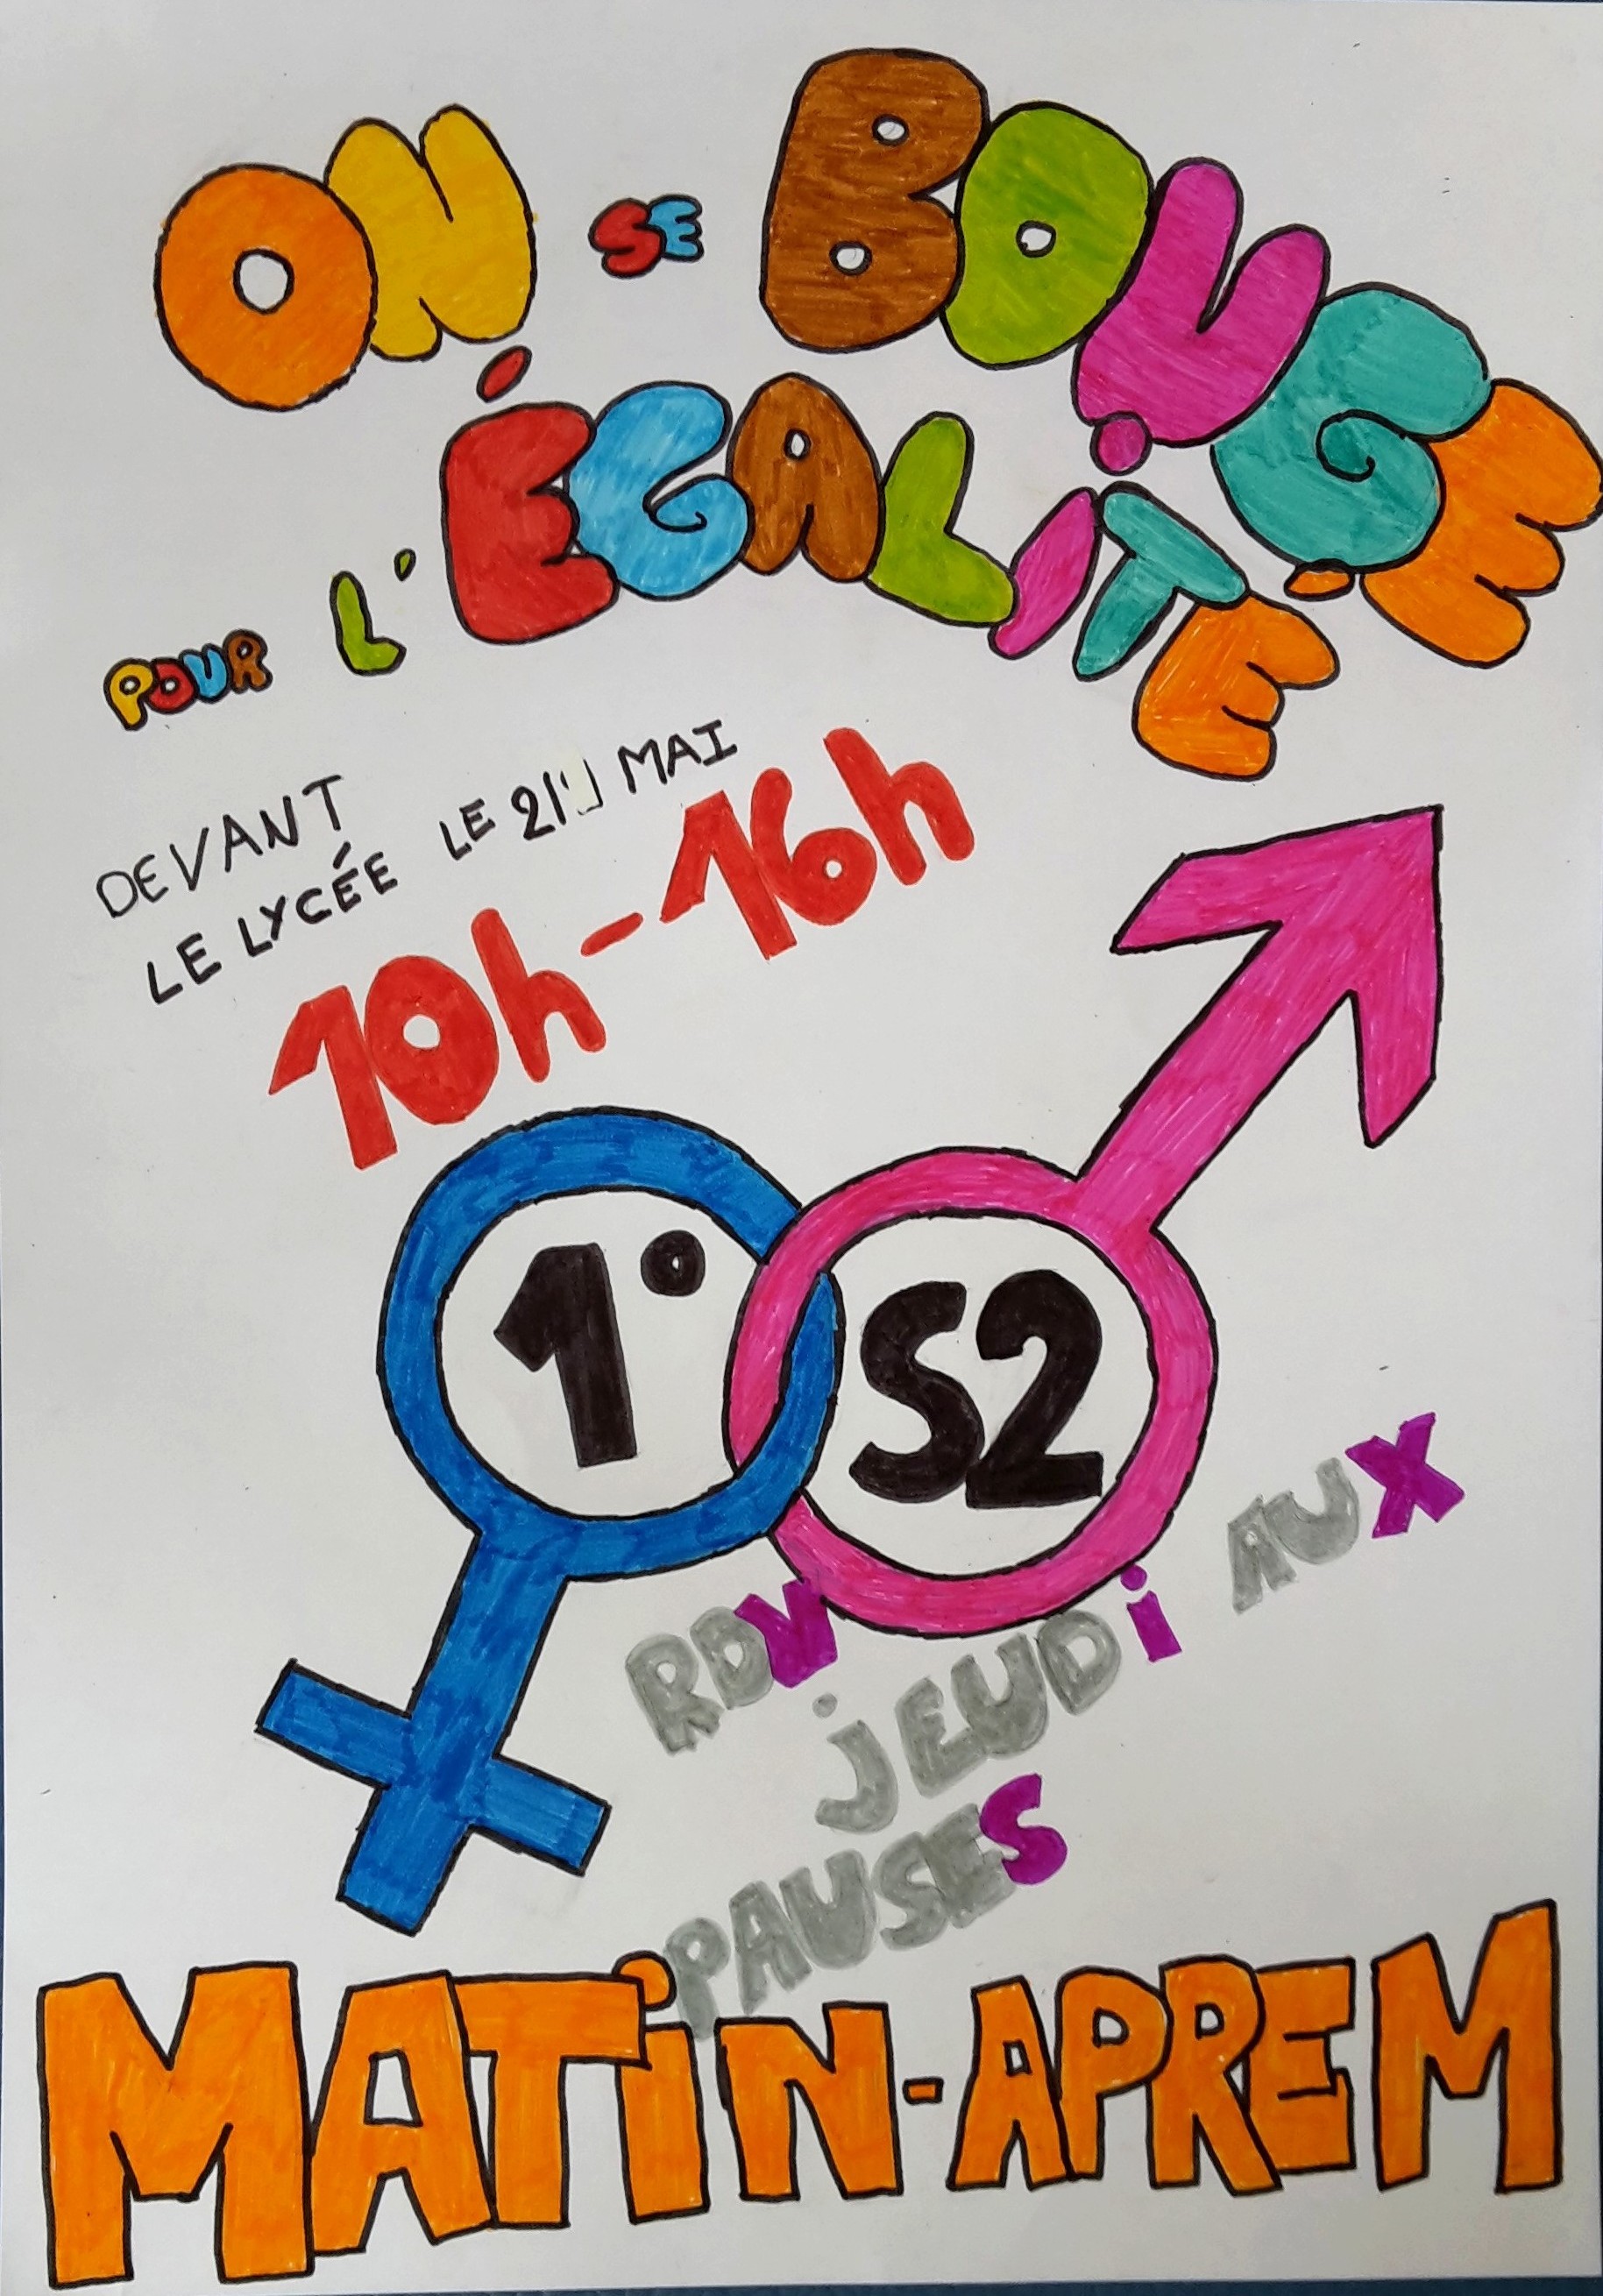 ON SE BOUGE
POUR L'ÉGALITÉ
DEVANT
LE LYCÉE LE 21 MAI
10h-16h
1° S2
RDV
JEUDi AUX
PAUSES
MATiN-APREM